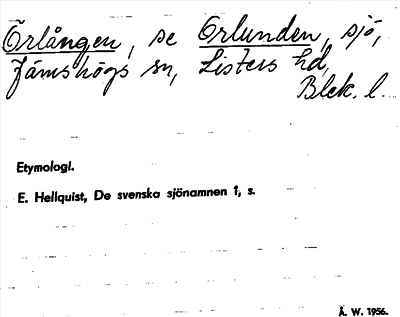 Örlången, se Orlunden, sjö,
Jämshögs sn, Listers hd,
Blek. l.
Etymologi.
E. Hellquist, De svenska sjönamnen 1, s.
Å. W. 1956.